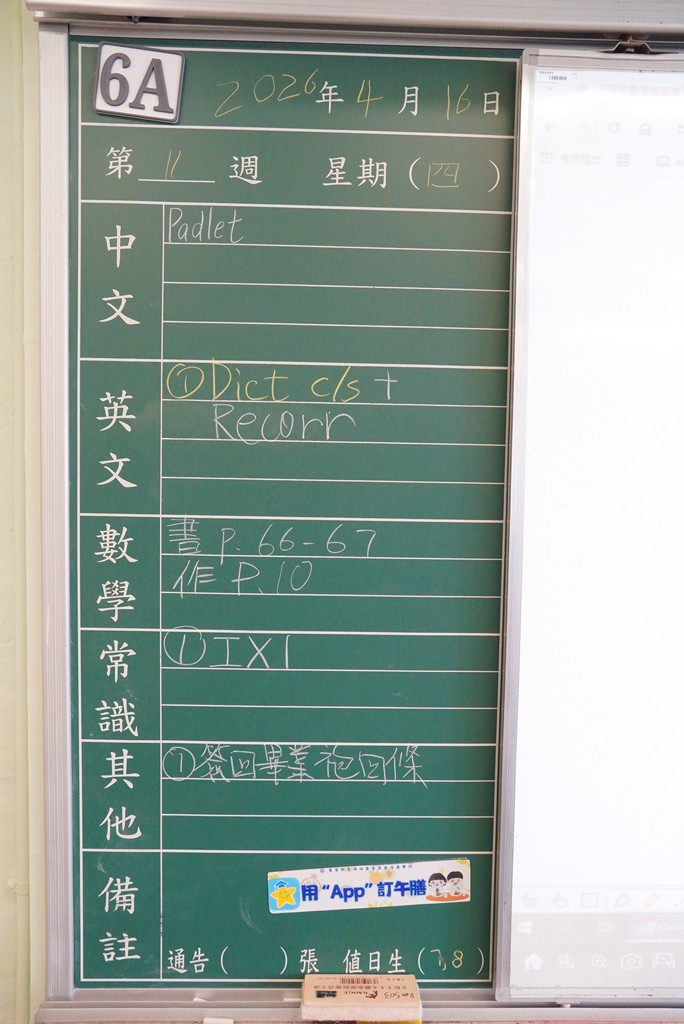 6A
2026年4月16日
第 11 週 星期(四)
中文
Padlet
英文
①Dict c/s +
Recorr
數學
書 P.66-67
作 P.10
常識
①IXl
其他
①簽回畢業袍回條
備註
用“App”訂午膳
通告( )張 值日生(7,8)
Rm 503